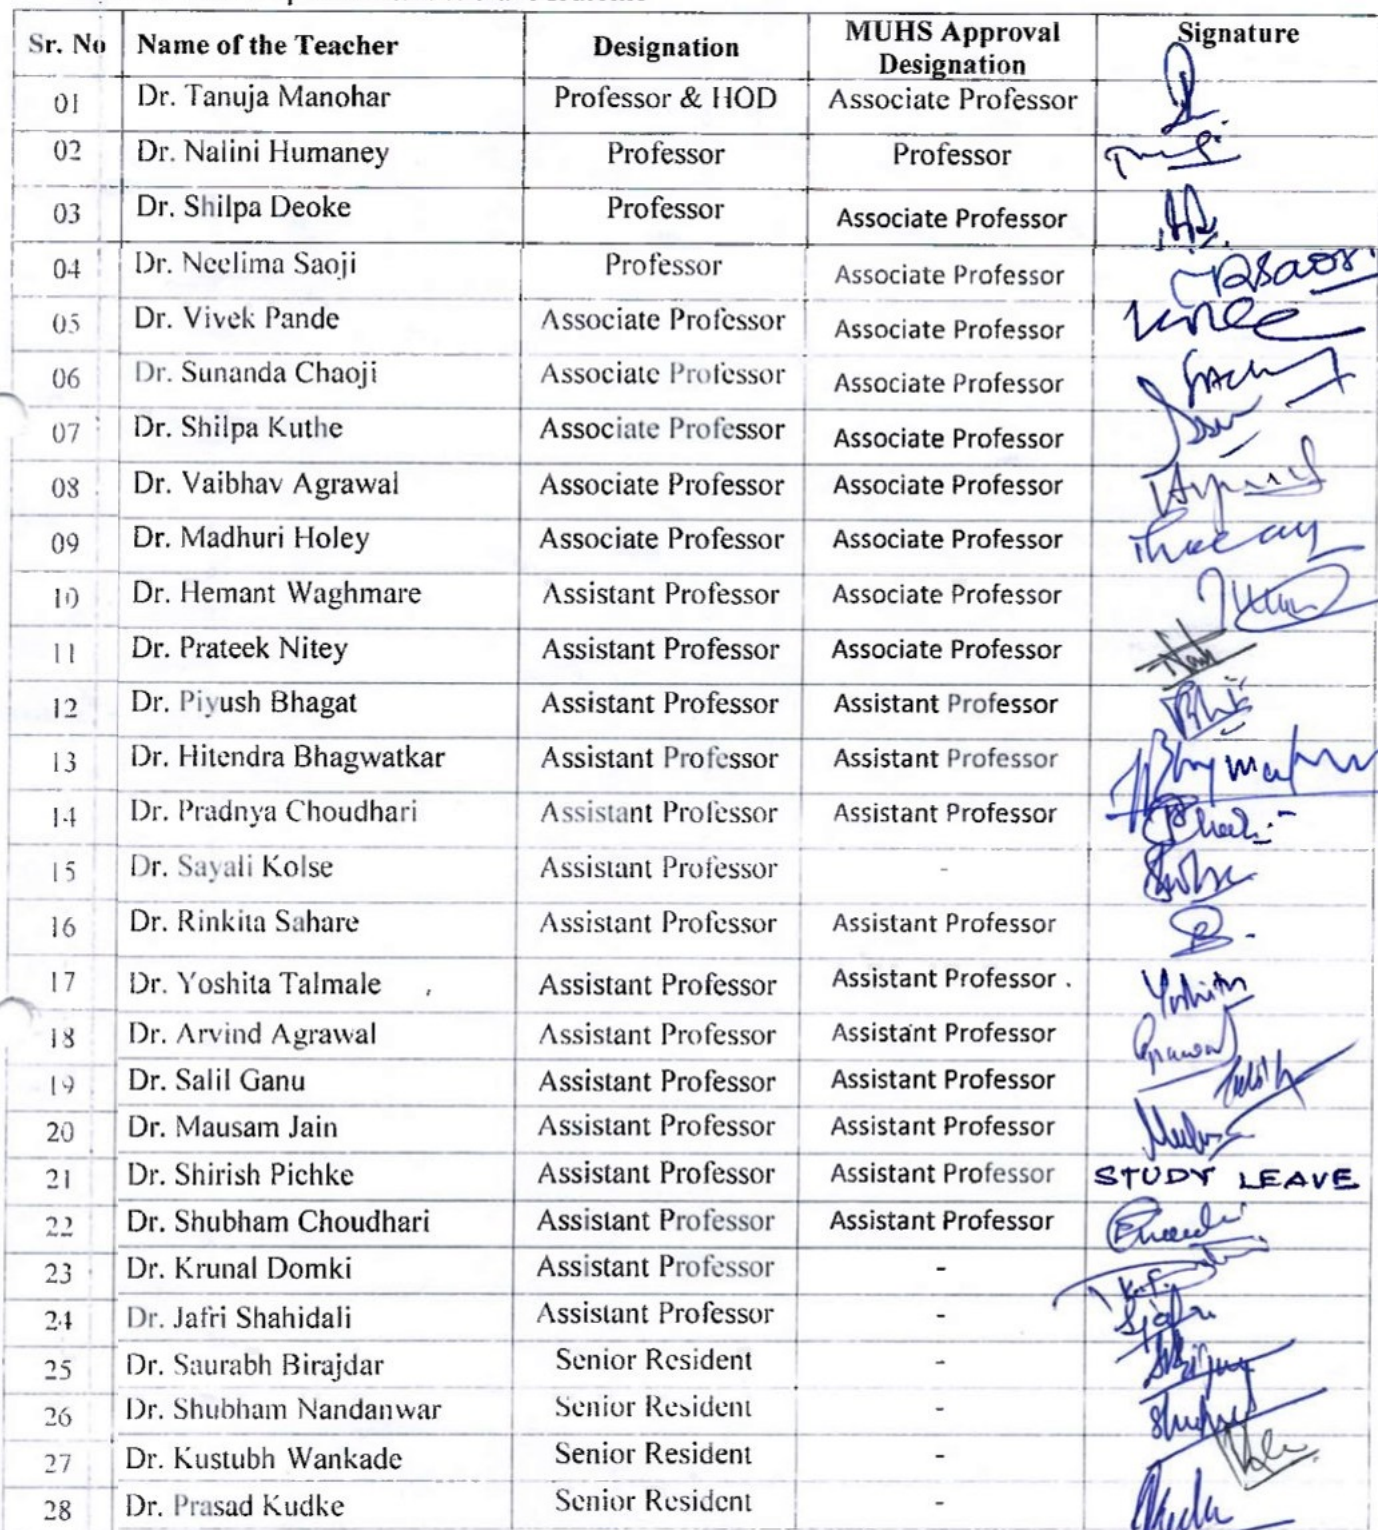 Sr. No Name of the Teacher Designation MUHS Approval Designation Signature
01 Dr. Tanuja Manohar Professor & HOD Associate Professor
02 Dr. Nalini Humaney Professor Professor
03 Dr. Shilpa Deoke Professor Associate Professor
04 Dr. Neelima Saoji Professor Associate Professor
05 Dr. Vivek Pande Associate Professor Associate Professor
06 Dr. Sunanda Chaoji Associate Professor Associate Professor
07 Dr. Shilpa Kuthe Associate Professor Associate Professor
08 Dr. Vaibhav Agrawal Associate Professor Associate Professor
09 Dr. Madhuri Holey Associate Professor Associate Professor
10 Dr. Hemant Waghmare Assistant Professor Associate Professor
11 Dr. Prateek Nitey Assistant Professor Associate Professor
12 Dr. Piyush Bhagat Assistant Professor Assistant Professor
13 Dr. Hitendra Bhagwatkar Assistant Professor Assistant Professor
14 Dr. Pradnya Choudhari Assistant Professor Assistant Professor
15 Dr. Sayali Kolse Assistant Professor -
16 Dr. Rinkita Sahare Assistant Professor Assistant Professor
17 Dr. Yoshita Talmale Assistant Professor Assistant Professor .
18 Dr. Arvind Agrawal Assistant Professor Assistant Professor
19 Dr. Salil Ganu Assistant Professor Assistant Professor
20 Dr. Mausam Jain Assistant Professor Assistant Professor
21 Dr. Shirish Pichke Assistant Professor Assistant Professor STUDY LEAVE
22 Dr. Shubham Choudhari Assistant Professor Assistant Professor
23 Dr. Krunal Domki Assistant Professor -
24 Dr. Jafri Shahidali Assistant Professor -
25 Dr. Saurabh Birajdar Senior Resident -
26 Dr. Shubham Nandanwar Senior Resident -
27 Dr. Kustubh Wankade Senior Resident -
28 Dr. Prasad Kudke Senior Resident -